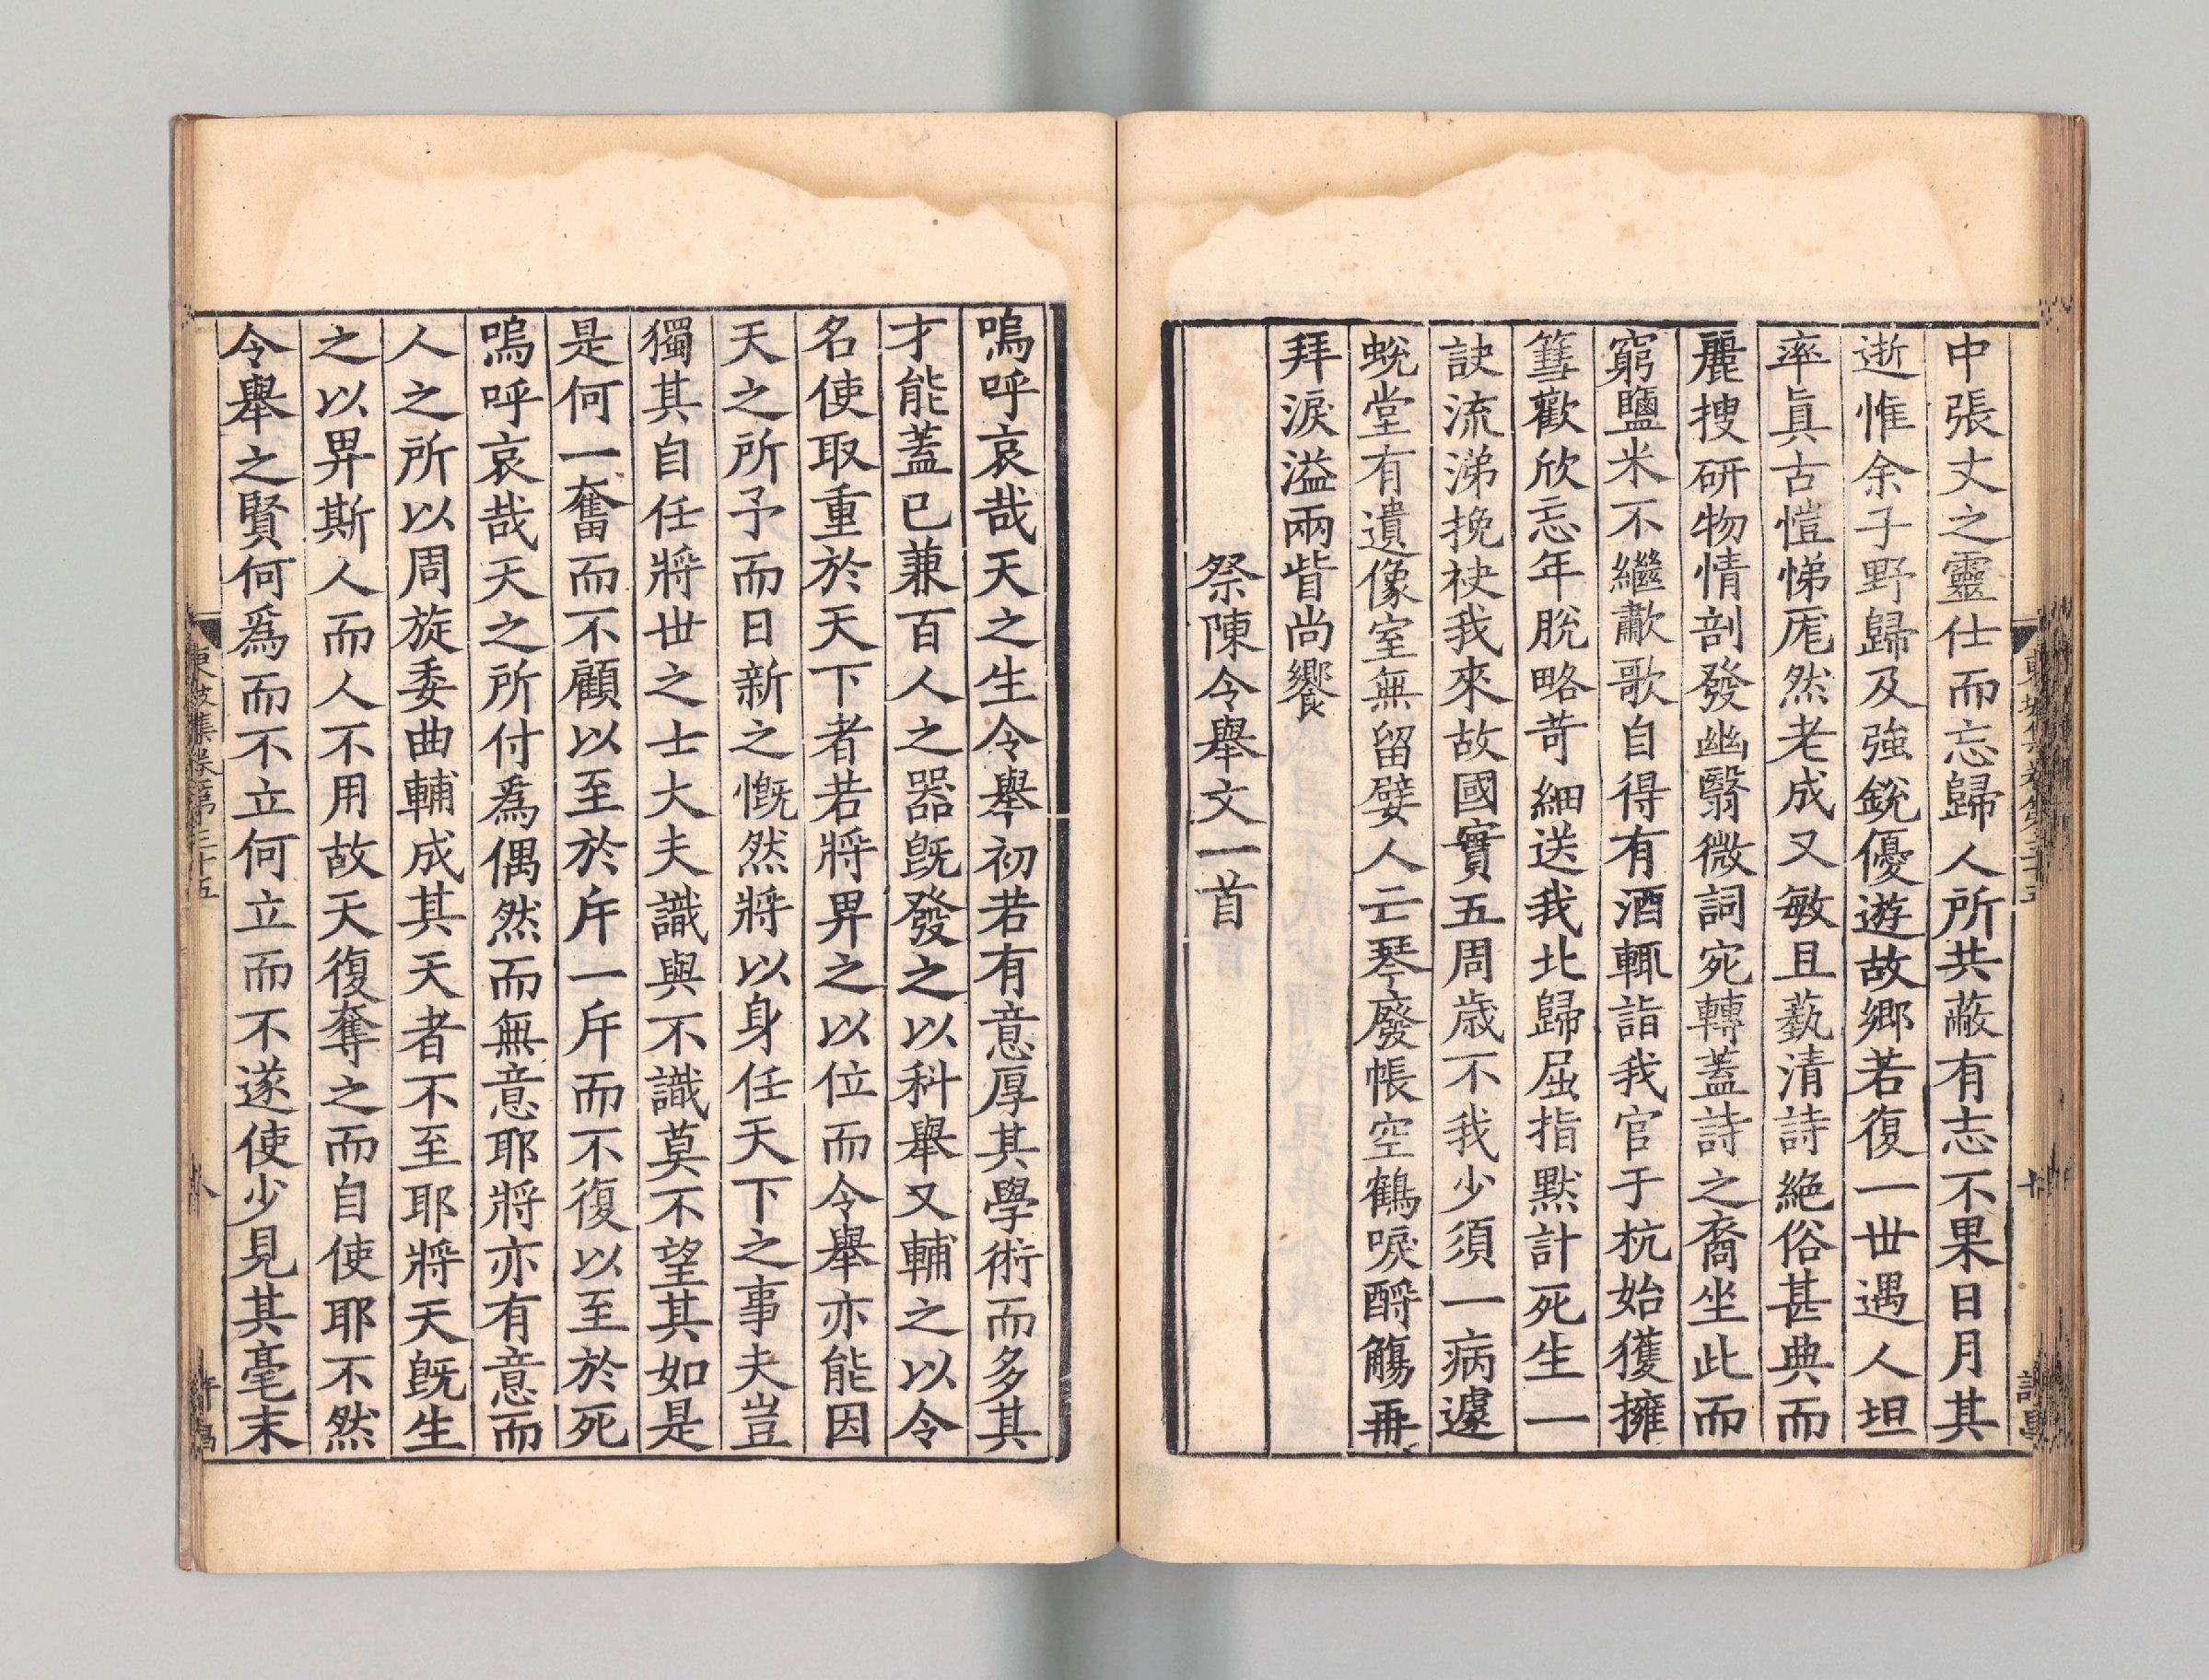 中張丈之靈仕而忘歸人所共蔽有志不果日月其
逝惟余子野歸及強銳優遊故鄉若復一世遇人坦
率眞古愷悌厖然老成又敏且蓺清詩絶俗甚典而
麗搜研物情剖發幽翳微詞宛轉蓋詩之裔坐此而
窮鹽米不繼歗歌自得有酒輒詣我官于杭始獲擁
篲歡欣忘年脫略苛細送我北歸屈指默計死生一
訣流涕挽袂我來故國實五周歳不我少須一病遽
蛻堂有遺像室無留嬖人亡琴廢帳空鶴唳酹觴再
拜淚溢兩眥尚饗
祭陳令舉文一首
嗚呼哀哉天之生令舉初若有意厚其學術而多其
才能蓋已兼百人之器旣發之以科舉又輔之以令
名使取重於天下者若將畀之以位而令舉亦能因
天之所予而日新之慨然將以身任天下之事夫豈
獨其自任將世之士大夫識與不識莫不望其如是
是何一奮而不顧以至於斥一斥而不復以至於死
嗚呼哀哉天之所付爲偶然而無意耶將亦有意而
人之所以周旋委曲輔成其天者不至耶將天旣生
之以畀斯人而人不用故天復奪之而自使耶不然
令舉之賢何爲而不立何立而不遂使少見其毫末
東坡集卷第三十五